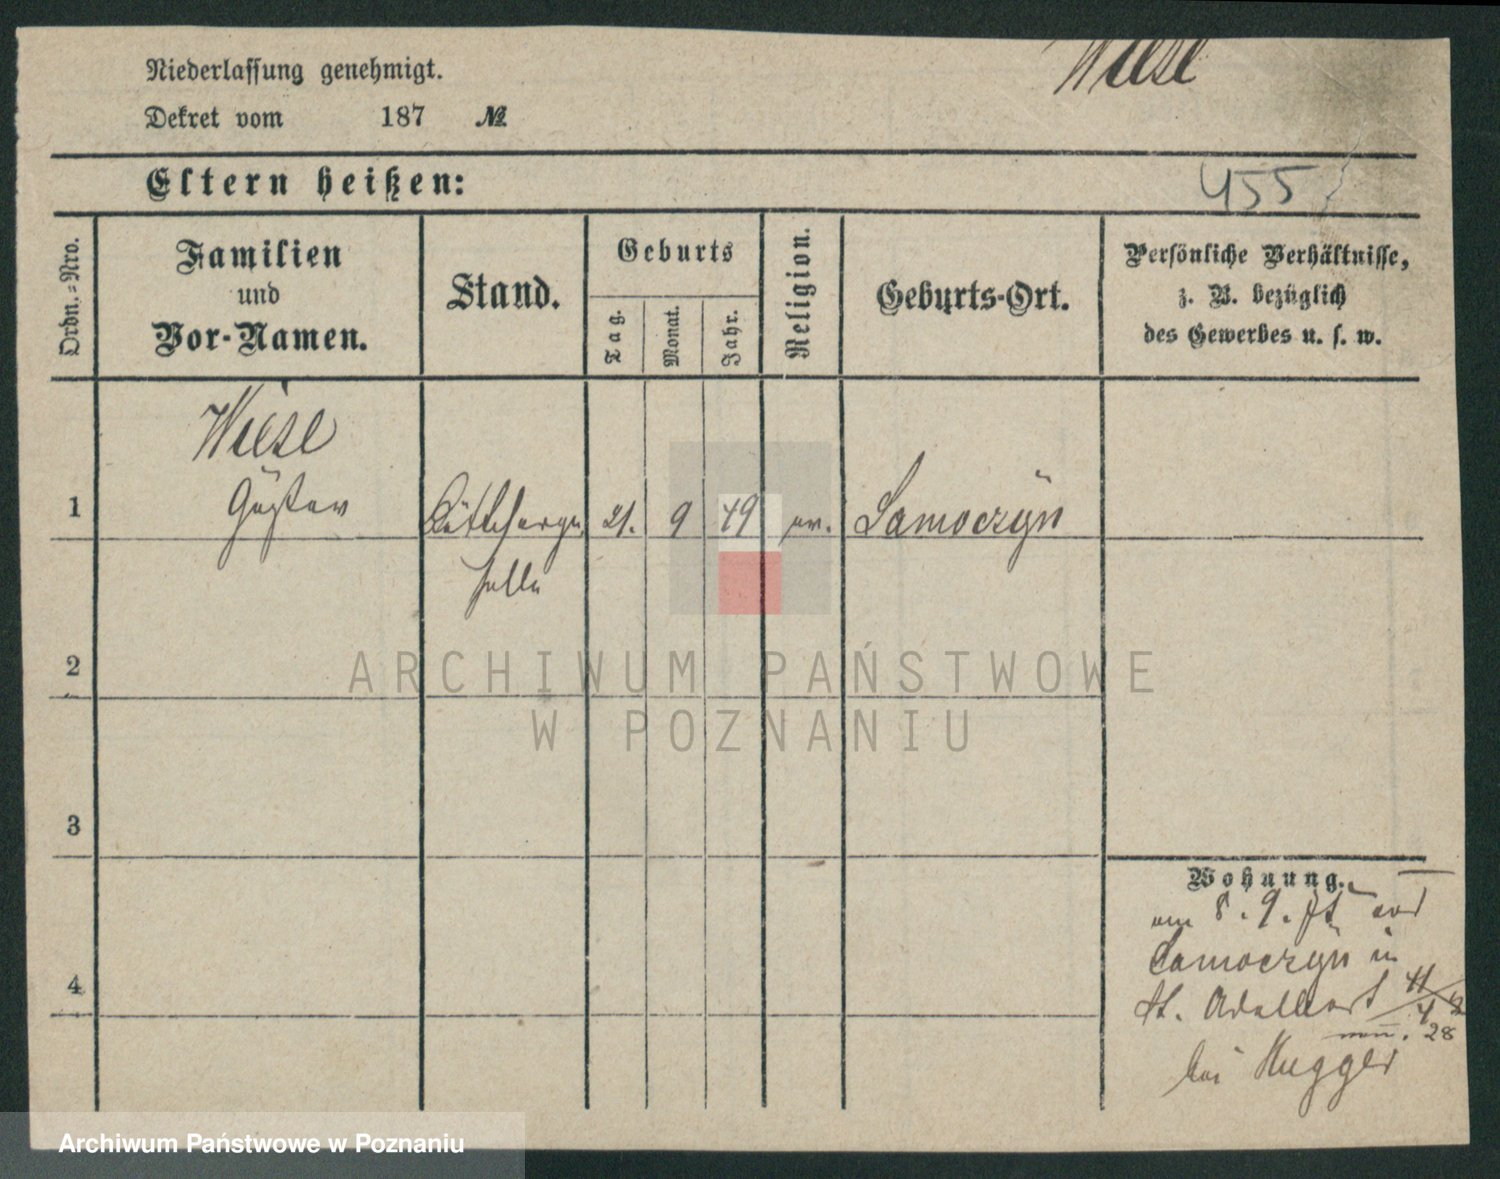 Wiese
Niederlassung genehmigt.
Dekret vom 187 №
Eltern heißen:
455
Ordn.=Nro.
Familien
und
Vor-Namen.
Stand.
Geburts
Tag.
Monat.
Jahr.
Religion.
Geburts-Ort.
Persönliche Verhältnisse,
z. B. bezüglich
des Gewerbes u. s. w.
Wiese
1 Gustav 21. 9 49 ev. Samoczyn
2
ARCHIWUM PAŃSTWOWE
W POZNANIU
3
Wohnung.
8. 9.
Samoczyn in
St. Adalbert
28
bei Hugger
4
Archiwum Państwowe w Poznaniu